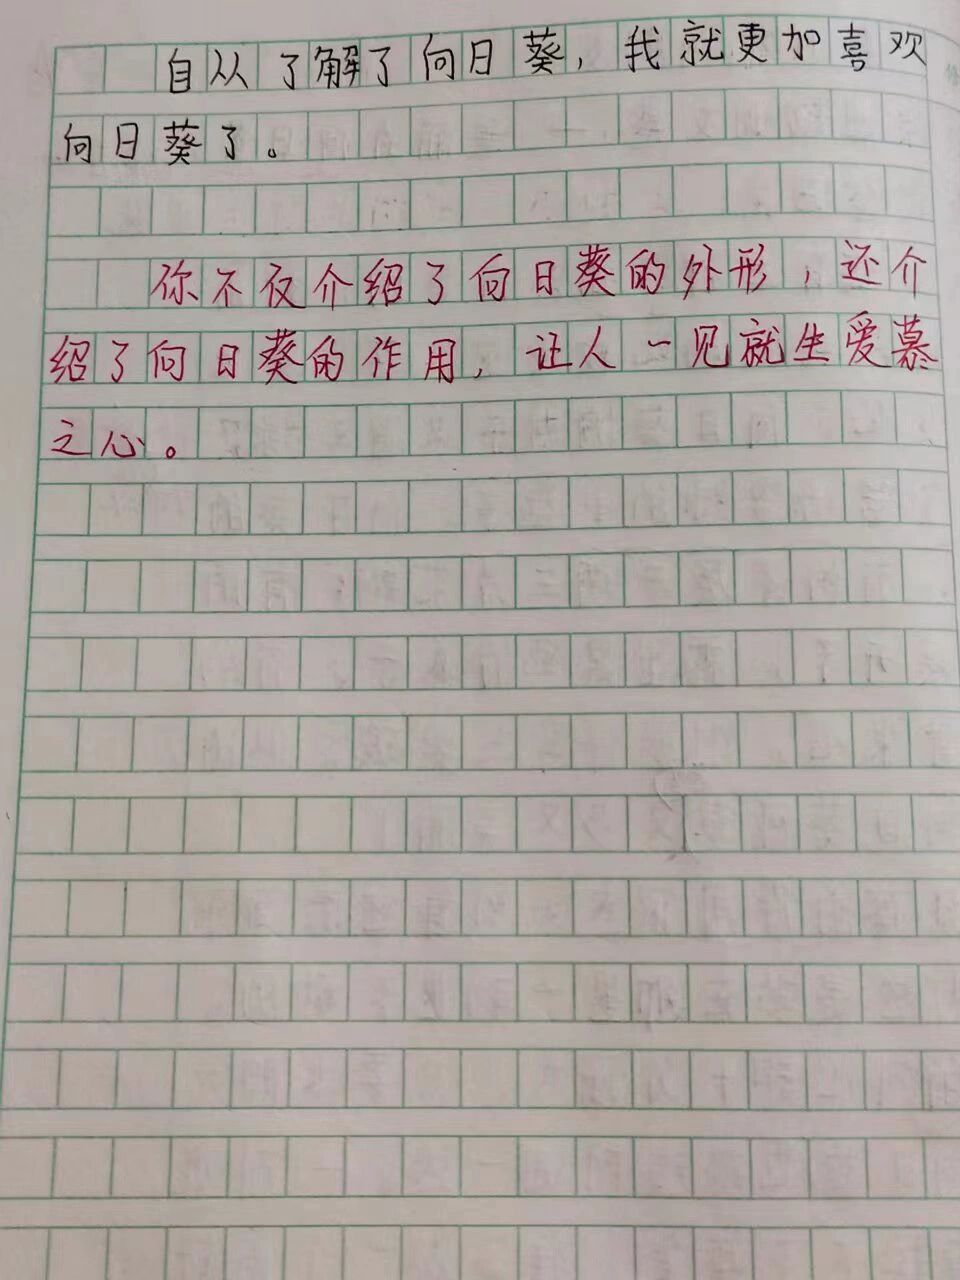 自从了解了向日葵,我就更加喜欢
向日葵了。
你不仅介绍了向日葵的外形,还介
绍了向日葵的作用,让人一见就生爱慕
之心。